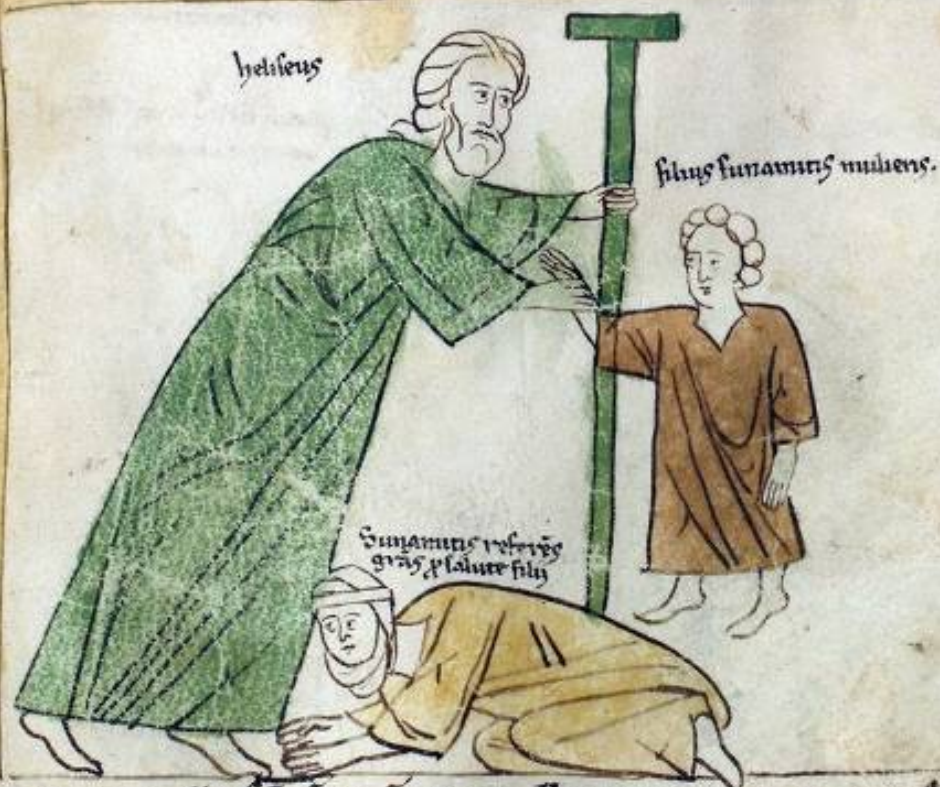 heliseus
filius sunamitis mulieris.
Sunamitis referēs
grās ꝓ salute filij